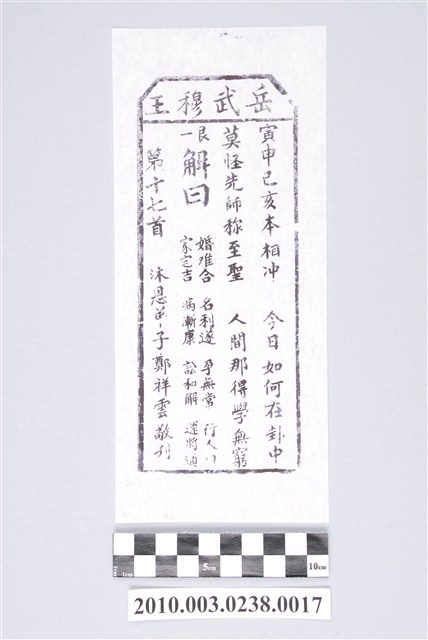 岳武穆王
寅申巳亥本相冲 今日如何在卦中
莫怪先師称至聖 人間那得學無窮
艮一
解曰
婚难合 名利遂 孕無常 行人
家宅吉 病漸康 訟和解 運將通
第十七首 沐恩弟子鄭祥雲敬刊
5cm
10cm
1cm
2010.003.0238.0017